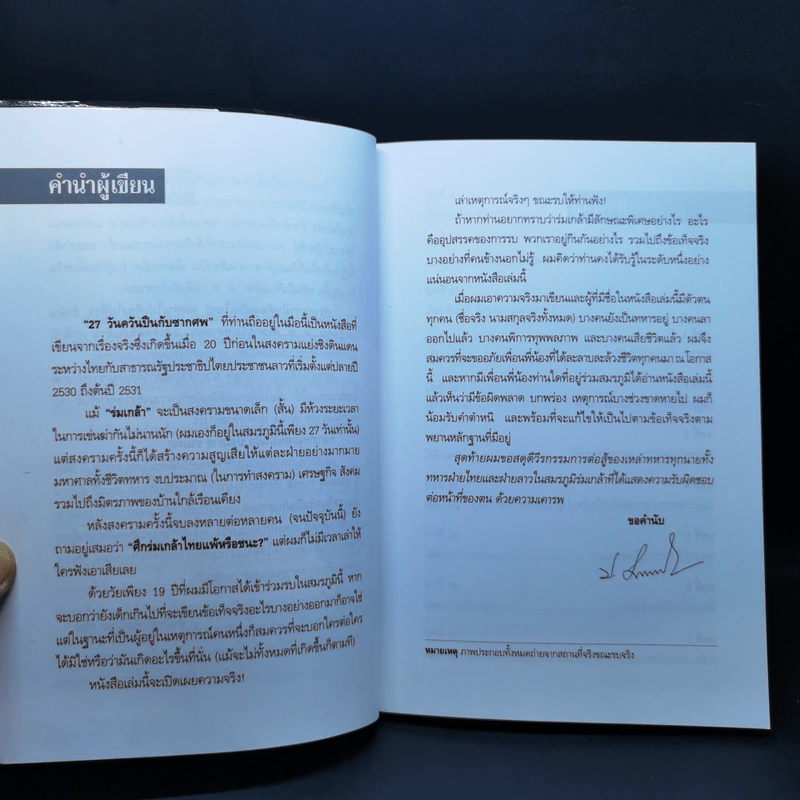 คำนำผู้เขียน
"27 วันควันปืนกับซากศพ" ที่ท่านถืออยู่ในมือนี้เป็นหนังสือที่
เขียนจากเรื่องจริงซึ่งเกิดขึ้นเมื่อ 20 ปีก่อนในสงครามแย่งชิงดินแดน
ระหว่างไทยกับสาธารณรัฐประชาธิปไตยประชาชนลาวที่เริ่มตั้งแต่ปลายปี
2530 ถึงต้นปี 2531
แม้ "ร่มเกล้า" จะเป็นสงครามขนาดเล็ก (สั้น) มีห้วงระยะเวลา
ในการเข่นฆ่ากันไม่นานนัก (ผมเองก็อยู่ในสมรภูมินี้เพียง 27 วันเท่านั้น)
แต่สงครามครั้งนี้ก็ได้สร้างความสูญเสียให้แต่ละฝ่ายอย่างมากมาย
มหาศาลทั้งชีวิตทหาร งบประมาณ (ในการทำสงคราม) เศรษฐกิจ สังคม
รวมไปถึงมิตรภาพของบ้านใกล้เรือนเคียง
หลังสงครามครั้งนี้จบลงหลายต่อหลายคน (จนปัจจุบันนี้) ยัง
ถามอยู่เสมอว่า "ศึกร่มเกล้าไทยแพ้หรือชนะ?" แต่ผมก็ไม่มีเวลาเล่าให้
ใครฟังเอาเสียเลย
ด้วยวัยเพียง 19 ปีที่ผมมีโอกาสได้เข้าร่วมรบในสมรภูมินี้ หาก
จะบอกว่ายังเด็กเกินไปที่จะเขียนข้อเท็จจริงอะไรบางอย่างออกมาก็อาจใช่
แต่ในฐานะที่เป็นผู้อยู่ในเหตุการณ์คนหนึ่งก็สมควรที่จะบอกใครต่อใคร
ได้มิใช่หรือว่ามันเกิดอะไรขึ้นที่นั่น (แม้จะไม่ทั้งหมดที่เกิดขึ้นก็ตามที)
หนังสือเล่มนี้จะเปิดเผยความจริง!
เล่าเหตุการณ์จริงๆ ขณะรบให้ท่านฟัง!
ถ้าหากท่านอยากทราบว่าร่มเกล้ามีลักษณะพิเศษอย่างไร อะไร
คืออุปสรรคของการรบ พวกเราอยู่กินกันอย่างไร รวมไปถึงข้อเท็จจริง
บางอย่างที่คนข้างนอกไม่รู้ ผมคิดว่าท่านคงได้รับรู้ในระดับหนึ่งอย่าง
แน่นอนจากหนังสือเล่มนี้
เมื่อผมเอาความจริงมาเขียนและผู้ที่มีชื่อในหนังสือเล่มนี้มีตัวตน
ทุกคน (ชื่อจริง นามสกุลจริงทั้งหมด) บางคนยังเป็นทหารอยู่ บางคนลา
ออกไปแล้ว บางคนพิการทุพพลภาพ และบางคนเสียชีวิตแล้ว ผมจึง
สมควรที่จะขออภัยเพื่อนพี่น้องที่ได้ละลาบละล้วงชีวิตทุกคนมา ณ โอกาส
นี้ และหากมีเพื่อนพี่น้องท่านใดที่อยู่ร่วมสมรภูมิได้อ่านหนังสือเล่มนี้
แล้วเห็นว่ามีข้อผิดพลาด บกพร่อง เหตุการณ์บางช่วงขาดหายไป ผมก็
น้อมรับคำตำหนิ และพร้อมที่จะแก้ไขให้เป็นไปตามข้อเท็จจริงตาม
พยานหลักฐานที่มีอยู่
สุดท้ายผมขอสดุดีวีรกรรมการต่อสู้ของเหล่าทหารทุกนายทั้ง
ทหารฝ่ายไทยและฝ่ายลาวในสมรภูมิร่มเกล้าที่ได้แสดงความรับผิดชอบ
ต่อหน้าที่ของตน ด้วยความเคารพ
ขอคำนับ
หมายเหตุ ภาพประกอบทั้งหมดถ่ายจากสถานที่จริงขณะรบจริง